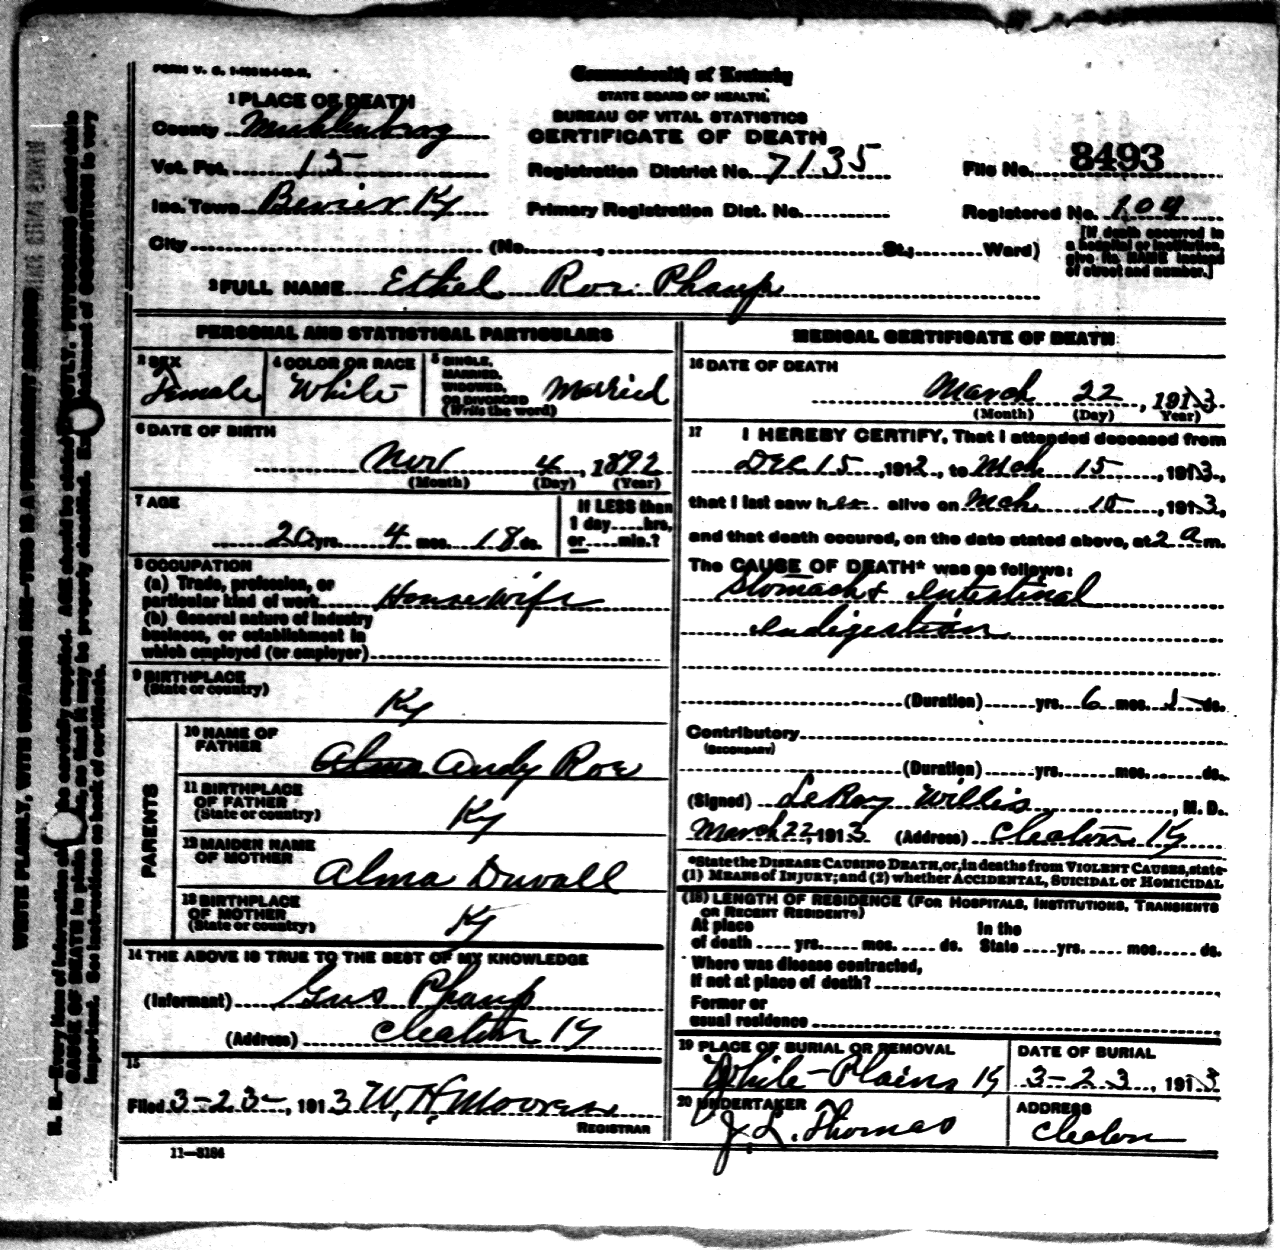 Commonwealth of Kentucky
STATE BOARD OF HEALTH.
BUREAU OF VITAL STATISTICS
CERTIFICATE OF DEATH
1 PLACE OF DEATH
County
Vot. Pct. 15
Registration District No. 7135
File No. 8493
Inc. Town Bevier Ky
Primary Registration Dist. No.
Registered No. 109
City (No. , St.; Ward)
[If death occurred in
a hospital or institution,
give its NAME instead
of street and number.]
2 FULL NAME Ethel Roe Phaup
PERSONAL AND STATISTICAL PARTICULARS
3 SEX
Female
4 COLOR OR RACE
White
5 SINGLE,
MARRIED,
WIDOWED,
OR DIVORCED
(Write the word)
Married
6 DATE OF BIRTH
Nov 4, 1892
(Month) (Day) (Year)
7 AGE
20 yrs. 4 mos. 18 ds.
If LESS than
1 day hrs,
or min.?
8 OCCUPATION
(a) Trade, profession, or
particular kind of work Housewife
(b) General nature of industry
business, or establishment in
which employed (or employer)
9 BIRTHPLACE
(State or country)
Ky
PARENTS
10 NAME OF
FATHER
Andy Roe
11 BIRTHPLACE
OF FATHER
(State or country)
Ky
12 MAIDEN NAME
OF MOTHER
Alma Duvall
13 BIRTHPLACE
OF MOTHER
(State or country)
Ky
14 THE ABOVE IS TRUE TO THE BEST OF MY KNOWLEDGE
(Informant) Gus Phaup
(Address) Cleaton Ky
15
Filed 3-23-, 1913 W. H. Moore
REGISTRAR
11—3184
MEDICAL CERTIFICATE OF DEATH
16 DATE OF DEATH
March 22, 1913
(Month) (Day) (Year)
17 I HEREBY CERTIFY, That I attended deceased from
Dec 15, 1912, to Mch 15, 1913,
that I last saw her alive on Mch 15, 1913,
and that death occured, on the date stated above, at 2 a m.
The CAUSE OF DEATH* was as follows:
Stomach & Intestinal
indigestion
(Duration) yrs. 6 mos. ds.
Contributory
(SECONDARY)
(Duration) yrs. mos. ds.
(Signed) LeRoy Willis, M. D.
March 22, 1913 (Address) Cleaton Ky
*State the DISEASE CAUSING DEATH, or, in deaths from VIOLENT CAUSES, state
(1) MEANS of INJURY; and (2) whether ACCIDENTAL, SUICIDAL or HOMICIDAL
(18) LENGTH OF RESIDENCE (FOR HOSPITALS, INSTITUTIONS, TRANSIENTS
OR RECENT RESIDENTS)
At place In the
of death yrs. mos. ds. State yrs. mos. ds.
Where was disease contracted,
If not at place of death?
Former or
usual residence
19 PLACE OF BURIAL OR REMOVAL
White Plains Ky
DATE OF BURIAL
3-23, 1913
20 UNDERTAKER
J. L. Thomas
ADDRESS
Cleaton